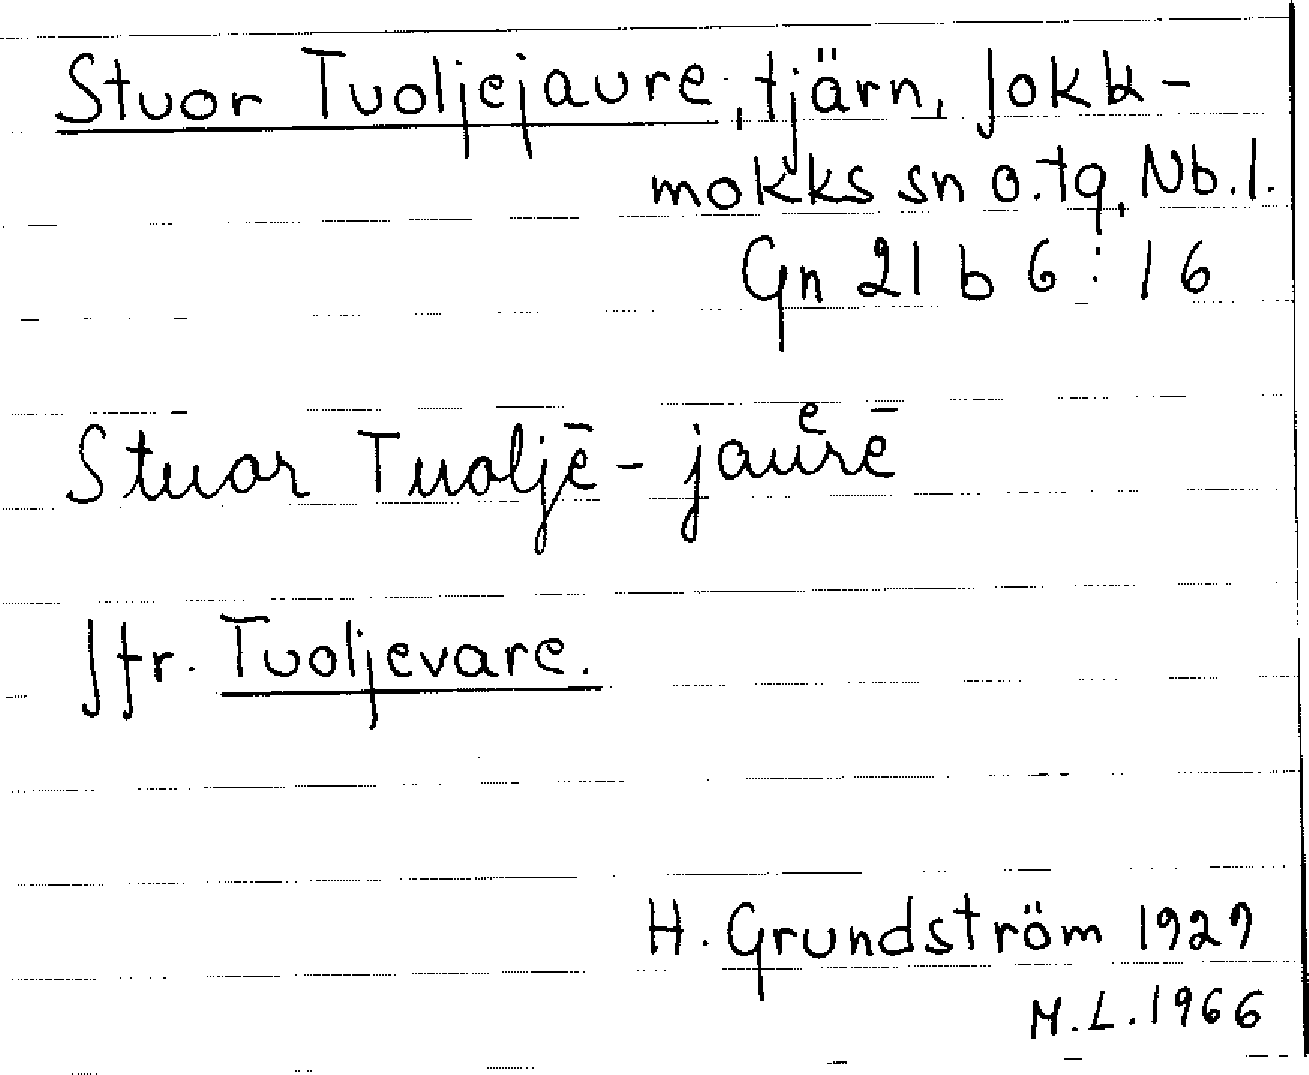 Stuor Tuoljejaure, tjärn, Jokk-
mokks sn o. tg, Nb. l.
Gn 21 b 6:16
Stuor Tuoljē - jauᵉrē
Jfr. Tuoljevare.
H. Grundström 1929
M.L. 1966